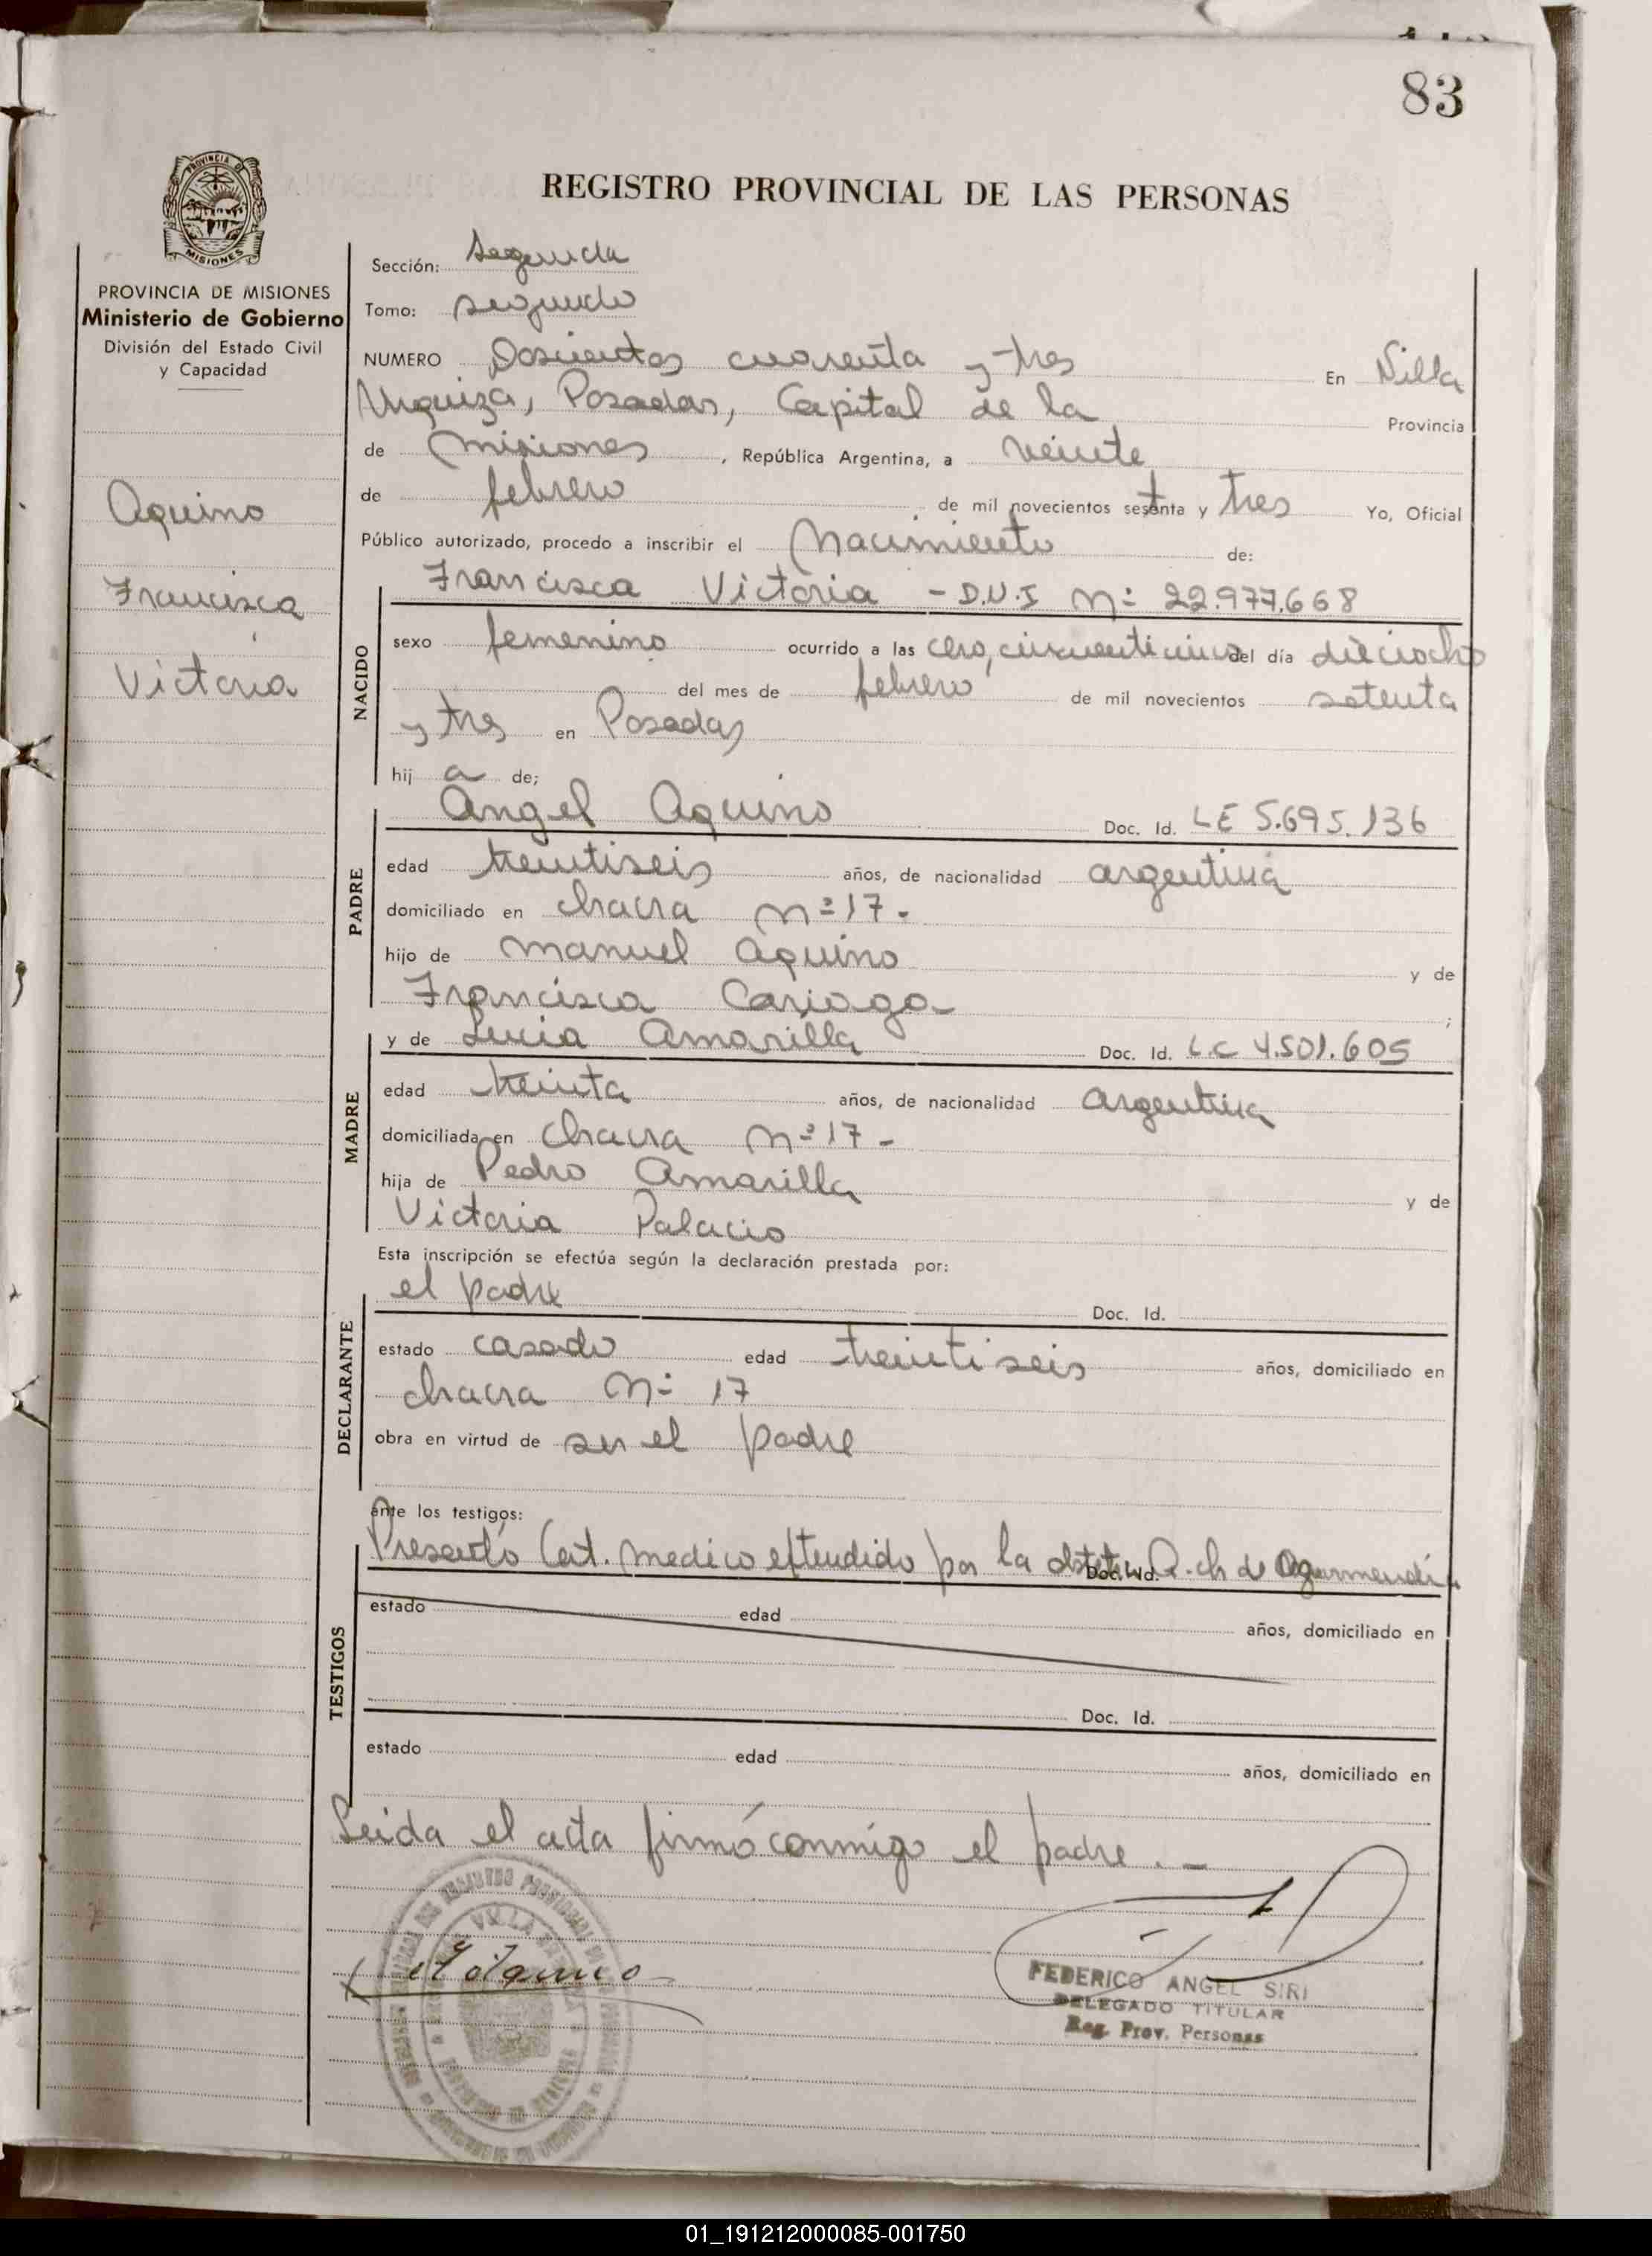 83
PROVINCIA DE
MISIONES
REGISTRO PROVINCIAL DE LAS PERSONAS
PROVINCIA DE MISIONES
Ministerio de Gobierno
División del Estado Civil
y Capacidad
Aquino
Francisca
Victoria
Sección: Segunda
Tomo: segundo
NUMERO Doscientos cuarenta y tres En Villa
Urquiza, Posadas, Capital de la Provincia
de Misiones, República Argentina, a veinte
de febrero de mil novecientos setenta y tres Yo, Oficial
Público autorizado, procedo a inscribir el Nacimiento de:
Francisca Victoria - D.N.I Nº 22.977.668
NACIDO
sexo femenino ocurrido a las cero, cincuenticinco del día dieciocho
del mes de febrero de mil novecientos setenta
y tres en Posadas
hij a de;
Angel Aquino Doc. Id. LE 5.695.136
PADRE
edad treintiseis años, de nacionalidad argentina
domiciliado en chacra nº 17 -
hijo de Manuel Aquino y de
Francisca Cariaga ;
y de Lucia Amarilla Doc. Id. L.C 4.501.605
MADRE
edad treinta años, de nacionalidad argentina
domiciliada en chacra nº 17 -
hija de Pedro Amarilla y de
Victoria Palacio
Esta inscripción se efectúa según la declaración prestada por:
el padre Doc. Id.
DECLARANTE
estado casado edad treintiseis años, domiciliado en
chacra Nº 17
obra en virtud de ser el padre
ante los testigos:
Presentó Cert. medico extendido por la Doc. Id. R. ch de
TESTIGOS
estado edad años, domiciliado en
Doc. Id.
estado edad años, domiciliado en
Leida el acta firmó conmigo el padre . -
Aquino
FEDERICO ANGEL SIRI
DELEGADO TITULAR
Reg. Prov. Personas
01_191212000085-001750